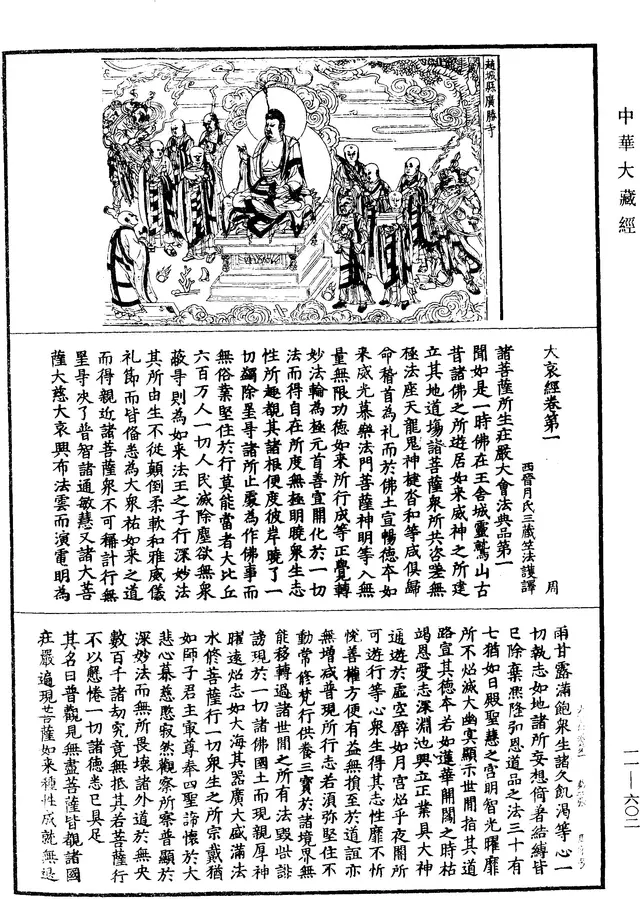 中華大藏經
趙城縣廣勝寺
大哀經卷第一
西晉月氏三藏竺法護譯 周
諸菩薩所生莊嚴大會法典品第一
聞如是一時佛在王舍城靈鷲山古
昔諸佛之所遊居如來威神之所建
立其地道場諸菩薩衆所共咨嗟無
極法座天龍鬼神揵沓和等咸俱歸
命稽首爲礼而於佛土宣暢德本如
來威光慕樂法門菩薩神明等入無
量無限功德如來所行成等正覺轉
妙法輪爲極元首善宣開化於一切
法而得自在所度無極明曉衆生志
性所趣觀其諸根便度彼岸曉了一
切蠲除罣㝵諸所止處爲作佛事而
無俗業堅住於行莫能當者大比丘
六百万人一切人民滅除塵欲無衆
蔽㝵則爲如來法王之子行深妙法
其所由生不從顛倒柔軟和雅威儀
礼節而皆俻悉爲大衆祐如來之道
而得親近諸菩薩衆不可稱計行無
罣㝵次了普智諸通敏慧又諸大菩
薩大慈大哀興布法雲而演電明爲
雨甘露滿飽衆生諸久飢渴等心一
切執志如地諸所妄想倚著結縛皆
已除棄燕隆弘恩道品之法三十有
七猶如日殿聖慧之宫明智光曜靡
所不炤滅大幽冥顯示世間指其道
路宣其德本若如蓮華開闊之時枯
竭恩愛志深淵池興立正業具大神
通遊於虛空譬如月宫炤乎夜闇所
可遊行等心衆生得其志性靡不忻
恱善權方便有益無損至於道誼亦
無增减普現所行志若須弥堅住不
動常修梵行供養三寶於諸境界無
能移轉過諸世間之所有法毀呰誹
謗現於一切諸佛國土而現親厚神
曜遠炤志如大海其器廣大盛滿法
水修菩薩行一切衆生之所宗戴猶
如師子君主最尊奉四聖諦懷於大
悲心慕慈愍寂然觀察所察普顯於
深妙法而無所畏壞諸外道於無央
數百千諸劫究竟無抵其若菩薩行
不以懃惓一切諸德悉已具足
其名曰普觀見無盡菩薩皆觀諸國
莊嚴遍現菩薩如來種性成就無退
一一—六〇二